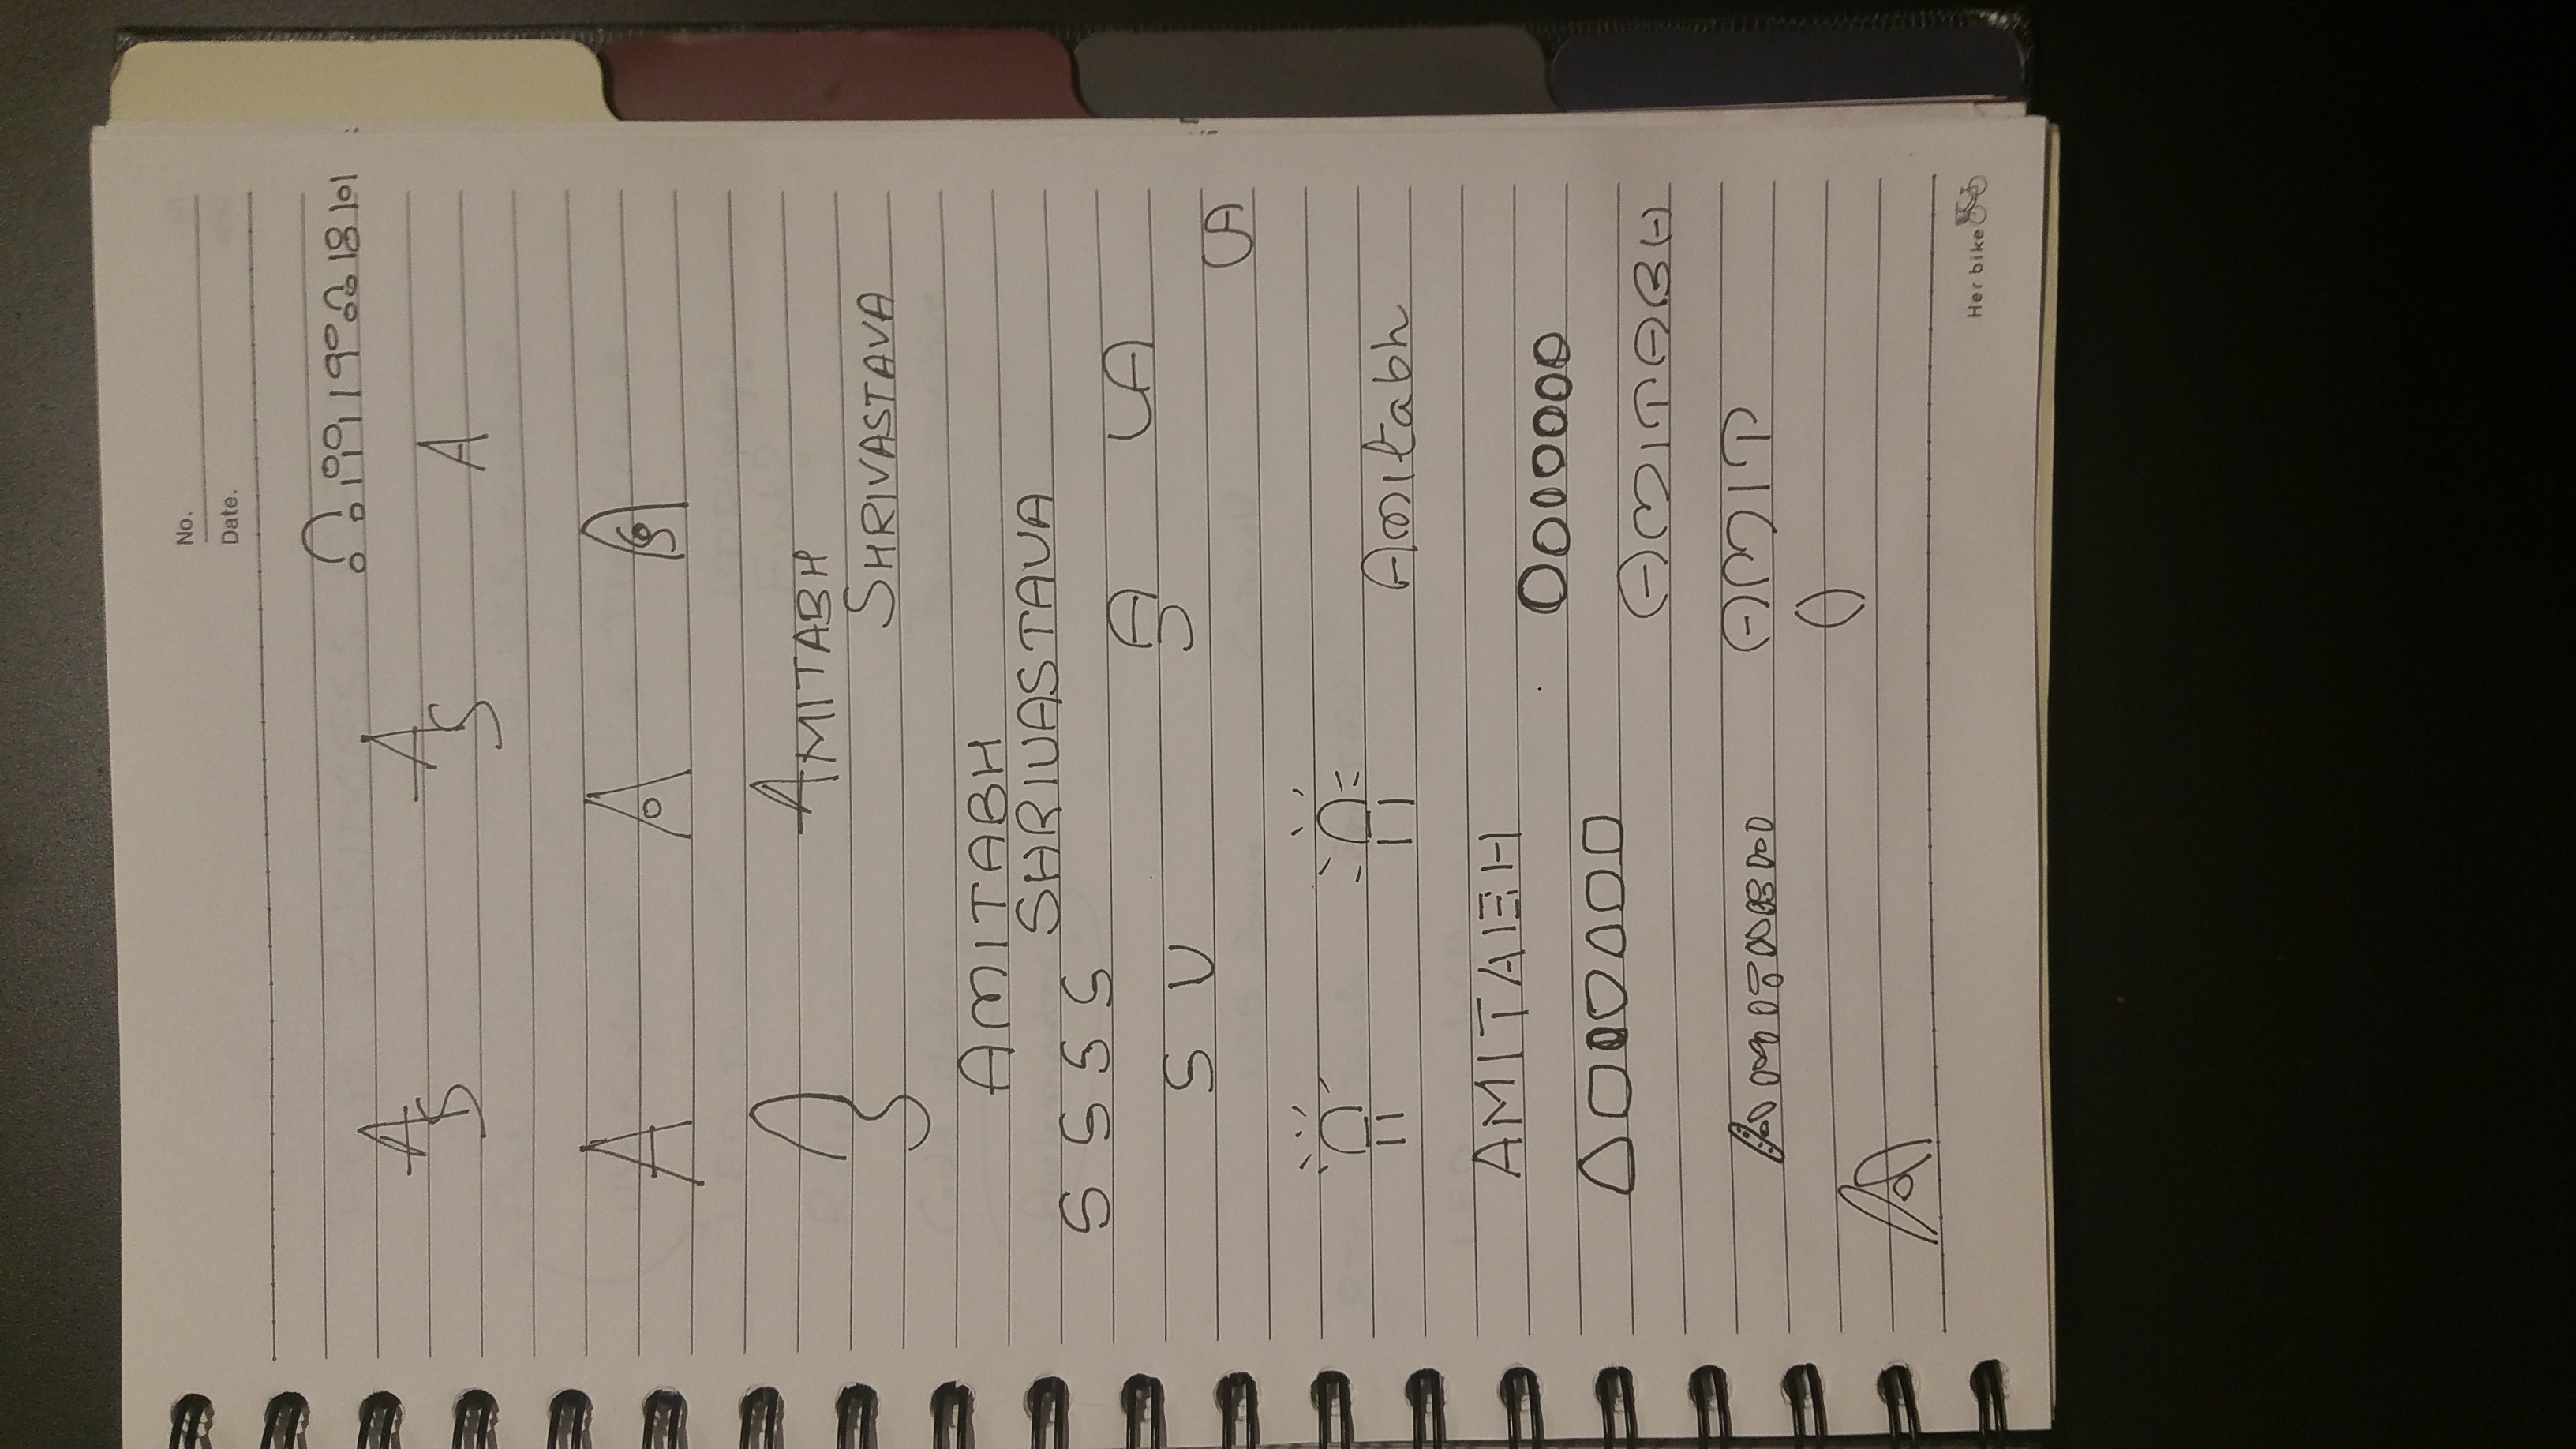 No.
Date.
A S
A S
A
A
A
A S
AMITABH
SHRIVASTAVA
AMITABH
SHRIVASTAVA
S S S S
A
A
S V
A
Amitabh
AMITABH
AMITABH
AMIT
A
Her bike